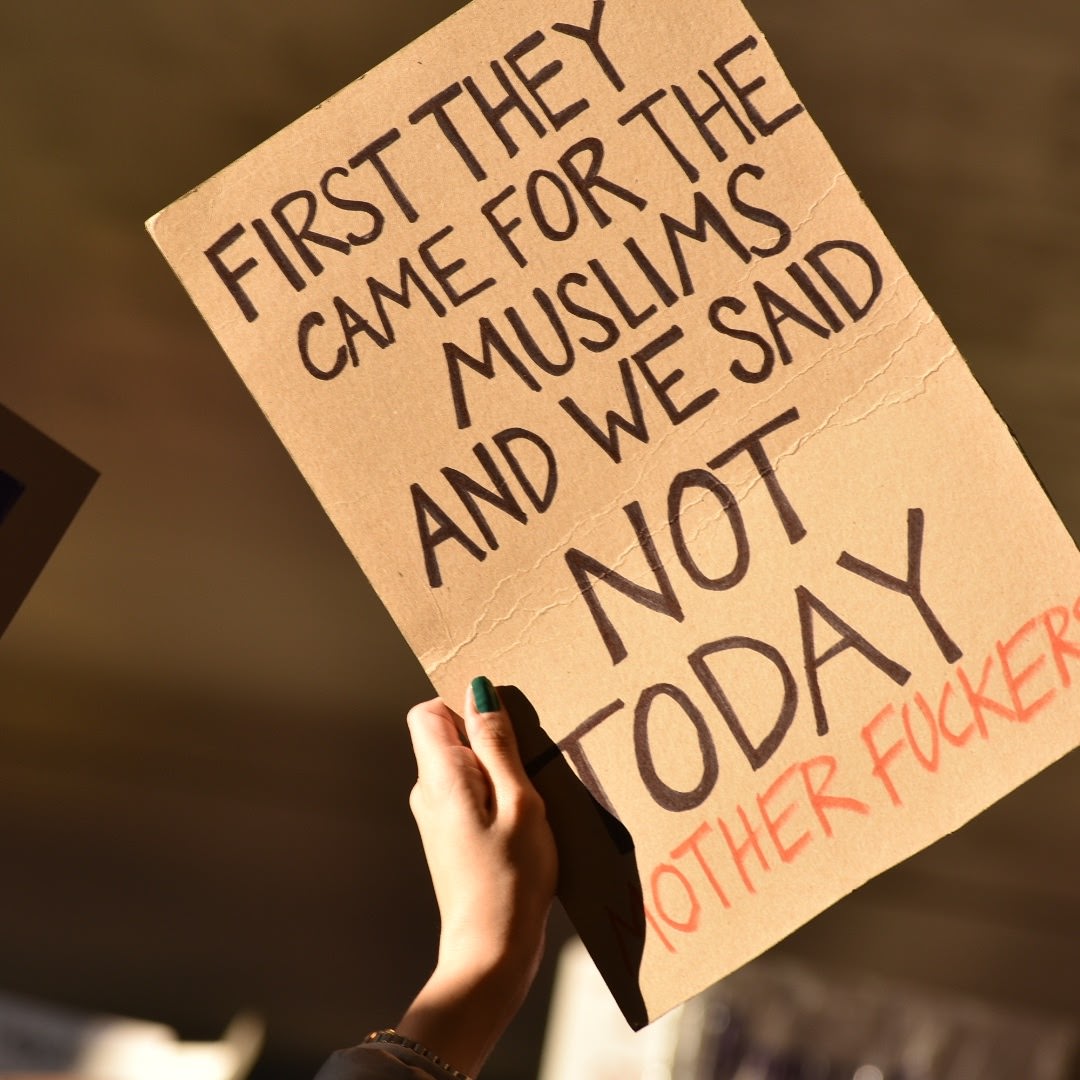 FIRST THEY
CAME FOR THE
MUSLIMS
AND WE SAID
NOT
TODAY
MOTHER FUCKERS